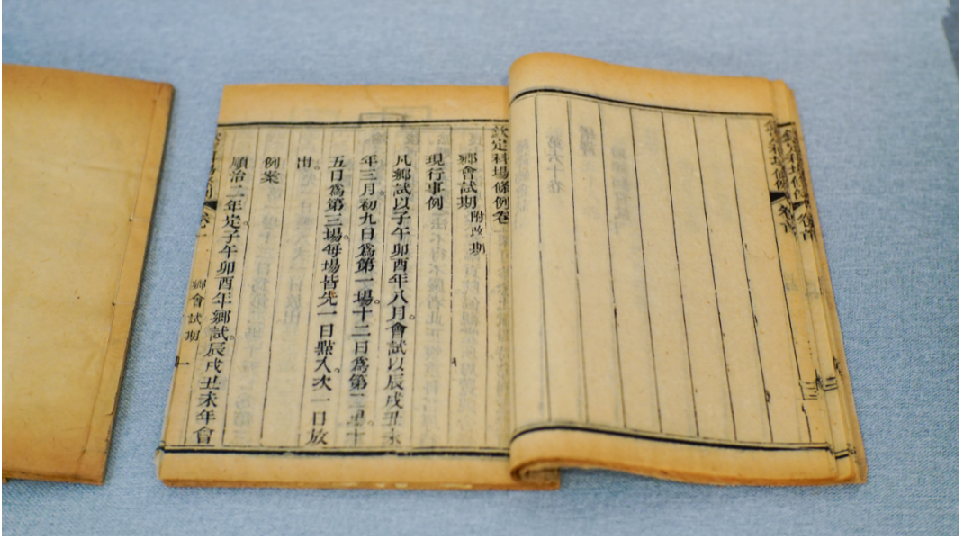 欽定科場條例卷一
鄉會試期 附改期
現行事例
凡鄉試以子午卯酉年八月會試以辰戌丑未
年三月初九日為第一場十二日為第二場十
五日為第三場每場皆先一日點入次一日放
出
例案
順治二年定子午卯酉年鄉試辰戌丑未年會
鄉會試期
欽定科場條例
卷首
三